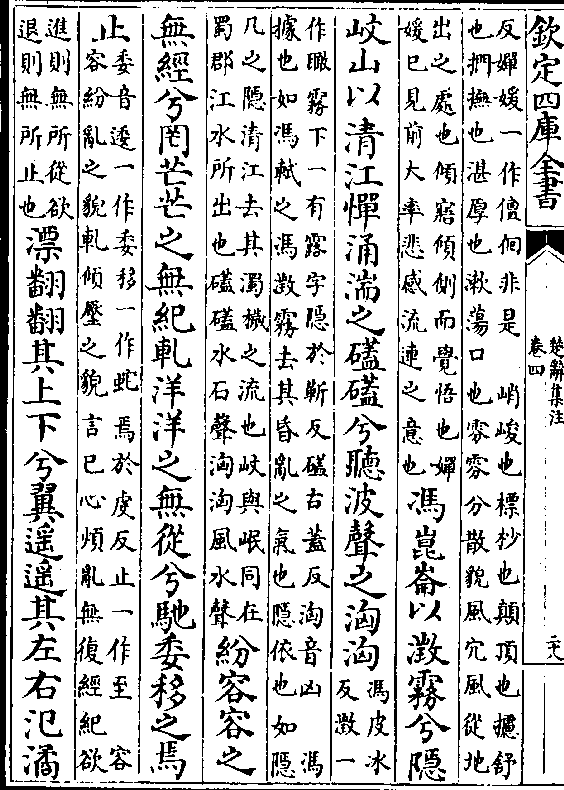 欽定四庫全書
楚辭集注
卷四
反嬋媛一作儃佪非是　峭峻也標杪也顛頂也攄舒
也捫撫也湛厚也漱蕩口也雰雰分散貌風穴風從地
出之處也傾寤傾側而覺悟也嬋
媛已見前大率悲感流連之意也
馮崑崙以澂霧兮隱
岐山以清江憚涌湍之礚礚兮聽波聲之洶洶
馮皮冰
反澂一
作瞰霧下一有露字隱於靳反礚古蓋反洶音凶　馮
據也如馮軾之馮澂霧去其昏亂之氣也隱依也如隱
几之隱清江去其濁穢之流也岐與岷同在
蜀郡江水所出也礚礚水石聲洶洶風水聲
紛容容之
無經兮罔芒芒之無紀軋洋洋之無從兮馳委移之焉
止
委音逶一作委移一作蛇　焉於虔反止一作至　容
容紛亂之貌軋傾壓之貌言已心煩亂無復經紀欲
進則無所從欲
退則無所止也
漂翻翻其上下兮翼遥遥其左右氾潏